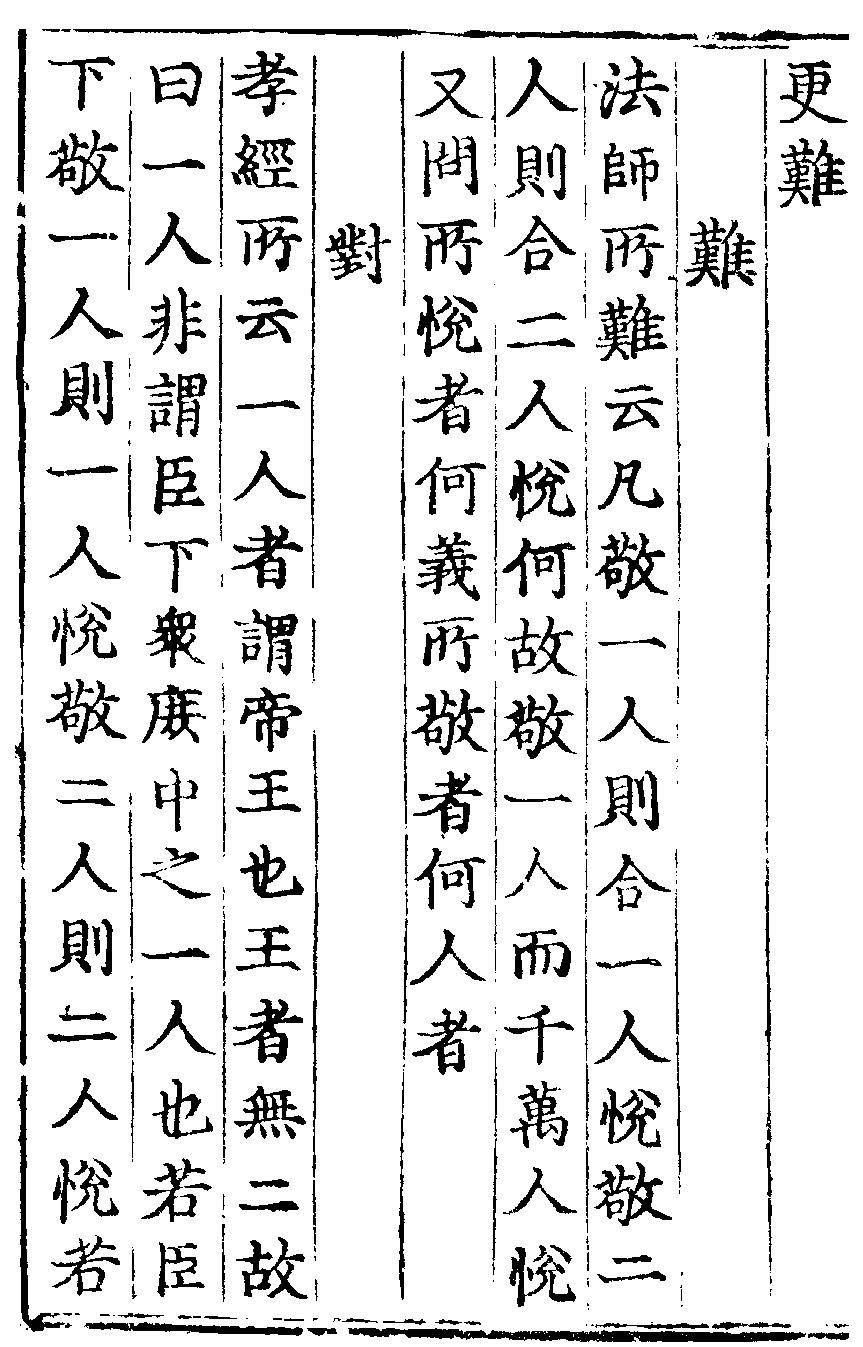 更難
難
法師所難云凡敬一人則合一人悅敬二
人則合二人悅何故敬一人而千萬人悅
又問所悅者何義所敬者何人者
對
孝經所云一人者謂帝王也王者無二故
曰一人非謂臣下衆庻中之一人也若臣
下敬一人則一人悅敬二人則二人悅若